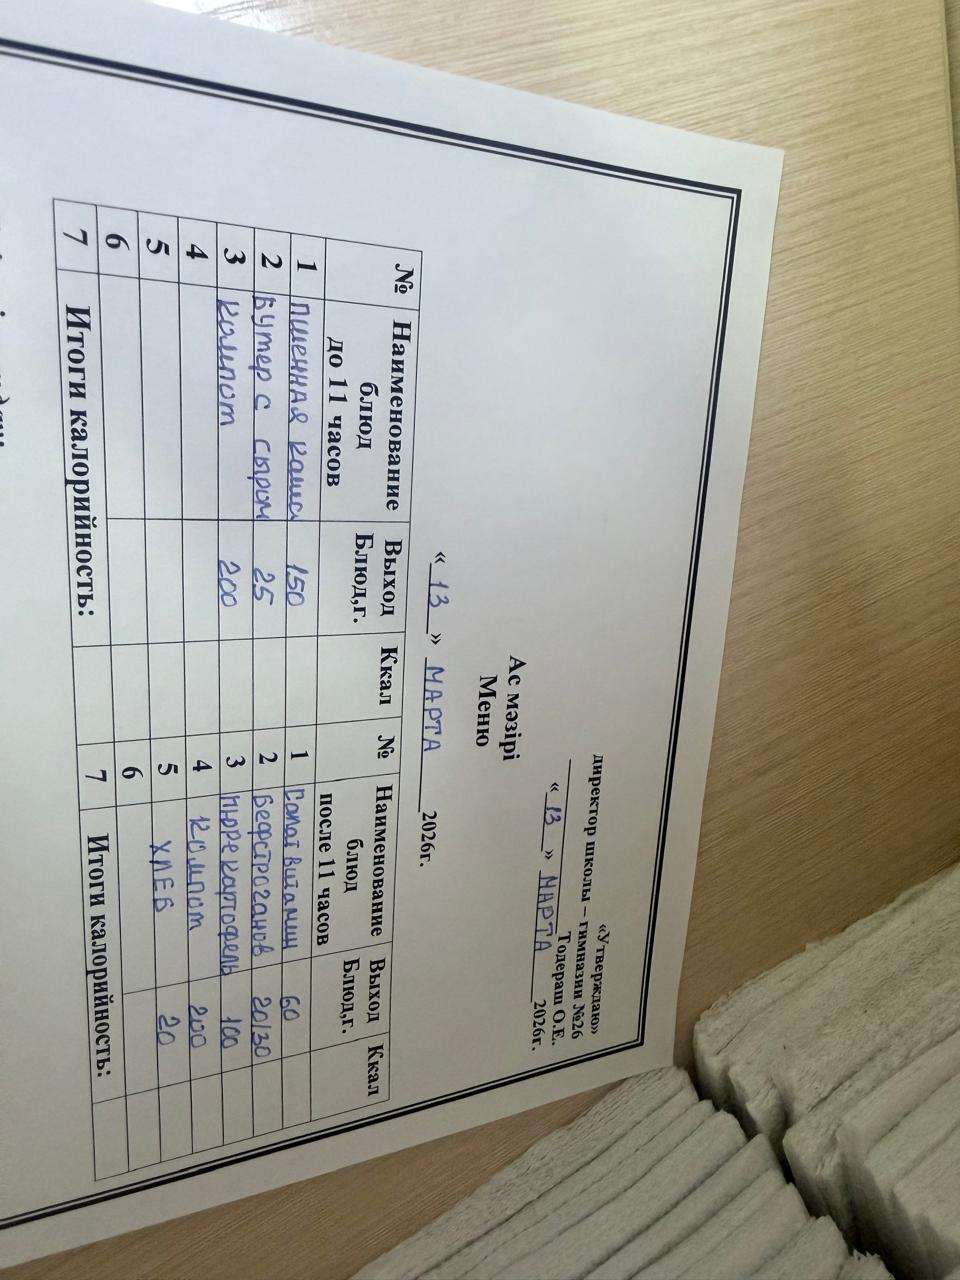 «Утверждаю»
директор школы – гимназии №26
Тодераш О.Е.
« 13 » МАРТА 2026г.
Ас мәзірі
Меню
« 13 » МАРТА 2026г.
№ Наименование блюд до 11 часов Выход Блюд,г. Ккал № Наименование блюд после 11 часов Выход Блюд,г. Ккал
1 Пшенная каша 150 1 Салат Витамин 60
2 Бутер с сыром 25 2 Бефстроганов 20/30
3 Компот 200 3 Пюре картофель 100
4 4 Компот 200
5 5 ХЛЕБ 20
6 6
7 Итоги калорийность: 7 Итоги калорийность: